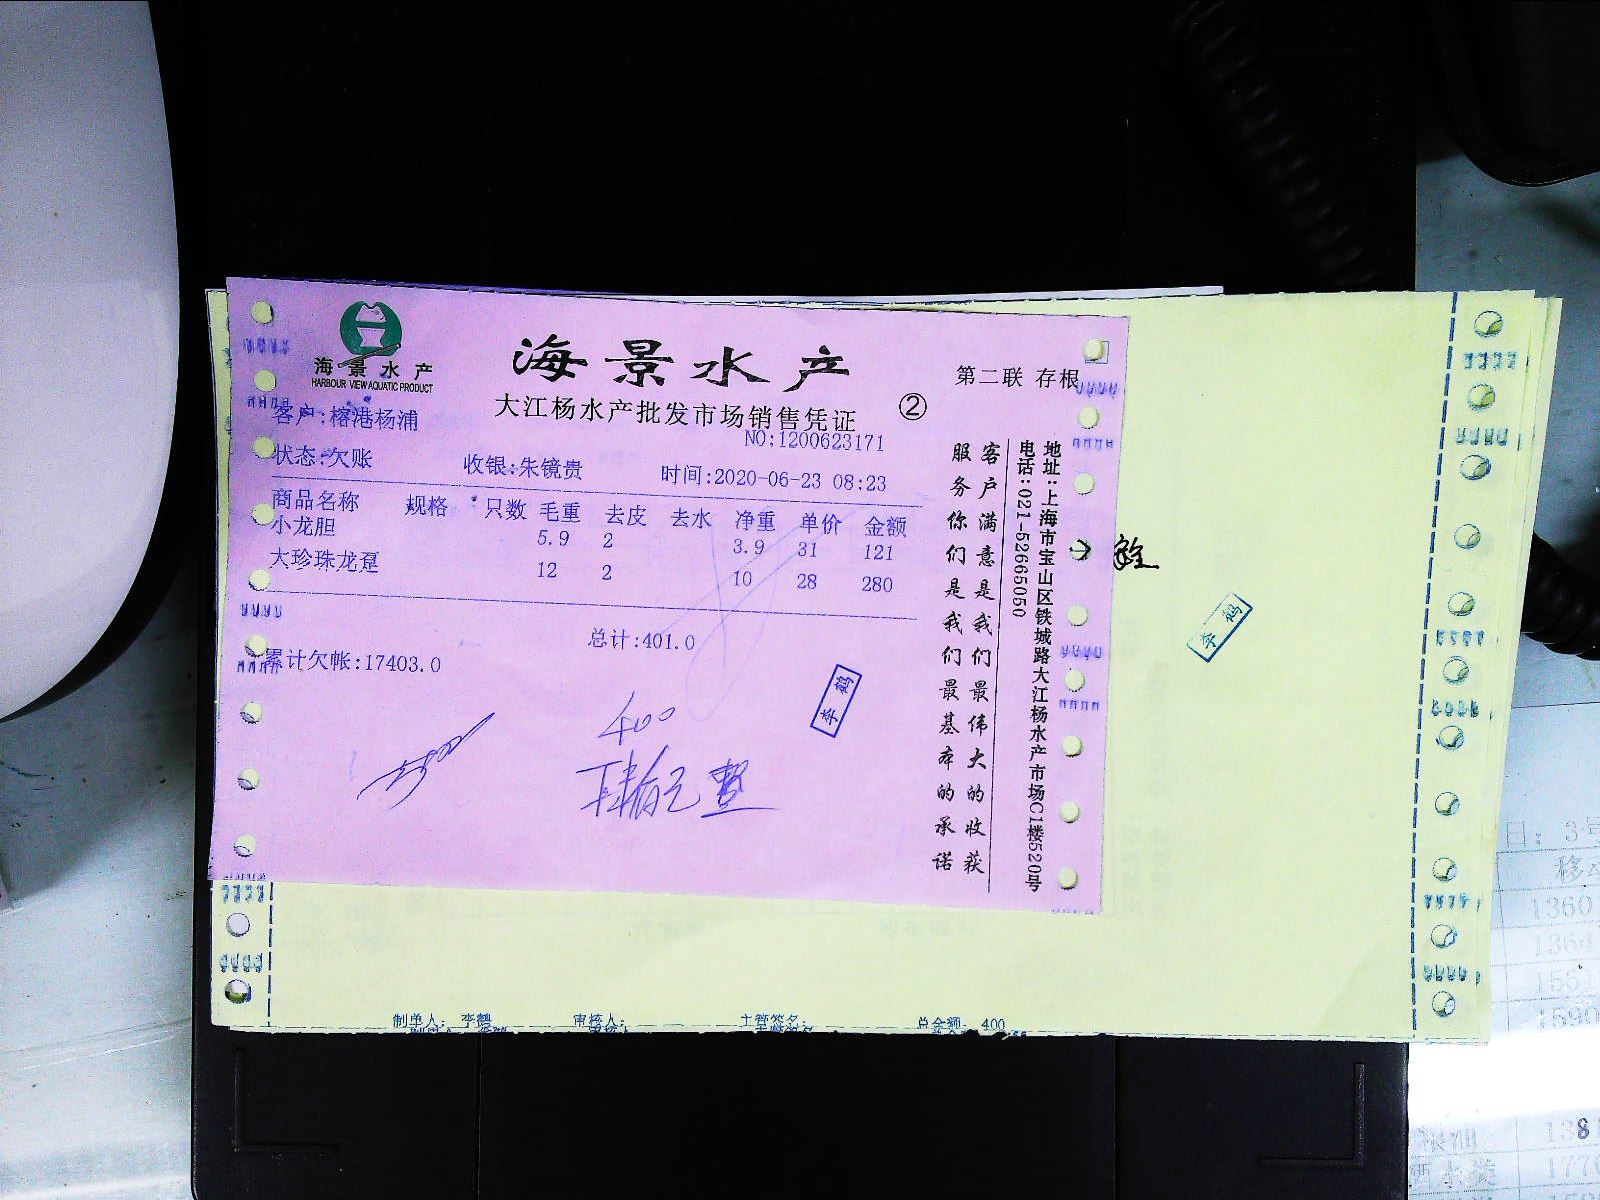 海景水产
HARBOUR VIEW AQUATIC PRODUCT
海景水产
第二联 存根
大江杨水产批发市场销售凭证
②
NO:1200623171
客户:榕港杨浦
状态:欠账 收银:朱镜贵 时间:2020-06-23 08:23
商品名称 规格 只数 毛重 去皮 去水 净重 单价 金额
小龙胆 5.9 2 3.9 31 121
大珍珠龙趸 12 2 10 28 280
总计:401.0
累计欠帐:17403.0
400
肆佰元整
李鹤
客户满意是我们最伟大的收获
服务你们是我们最基本的承诺
地址:上海市宝山区铁城路大江杨水产市场C1楼520号
电话:021-52665050
李鹤
制单人: 李鹤 审核人: 主管签名: 总金额: 400
日: 3号
移动
1360
1364
1561
1590
138
西水类 1770